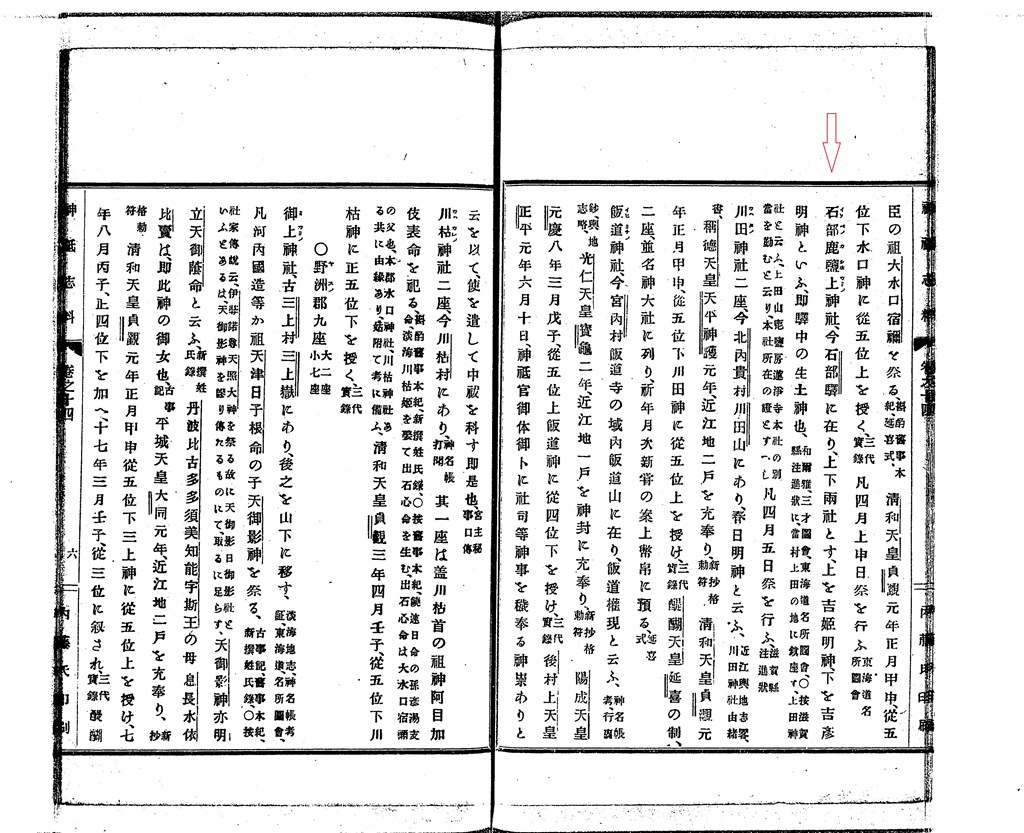 臣の祖大水口宿禰を祭る、舊事本紀、延喜式、清和天皇貞觀元年正月甲申、從五
位下水口神に從五位上を授く、三代實錄凡四月上申日祭を行ふ東海道名所圖會
石部鹿鹽上神社、今石部驛に在り、上下兩社とす、上を吉姫明神、下を吉彦
明神といふ、即驛中の生土神也、和爾雅、三才圖會、東海道名所圖會、〇按滋賀縣注進狀に、當村上田の地に鎮座す、上田神
社と云ふ、當を勤むと云り、本社所在の證とすへし凡四月五日祭を行ふ、滋賀縣注進狀
川田神社二座、今北內貴村川田山にあり、春日明神と云ふ、近江輿地志畧、川田神社由緖
書、稱德天皇天平神護元年、近江地二戸を充奉り、新抄格勅符清和天皇貞觀元
年正月甲申、從五位下川田神に從五位上を授け、三代實錄醍醐天皇延喜の制、
二座並名神大社に列り、祈年月次新嘗の案上幣帛に預る、延喜式
飯道神社、今宮內村飯道寺の域內飯道山に在り、飯道權現と云ふ、神名帳考、行囊
鈔、輿地志略、光仁天皇寶龜二年、近江地一戸を神封に充奉り、新抄格勅符陽成天皇
元慶八年三月戊子、從五位上飯道神に從四位下を授け、三代實錄後村上天皇
正平元年六月十日、神祇官御体御卜に社司等神事を穢奉る神祟ありと
神祇志料
卷之十四
六
云を以て、使を遣して中祓を科す即是也、宮主秘事口傳
川枯神社二座、今川枯村にあり、神名帳打聞其一座は盖川枯首の祖神阿目加
伎表命を祀る、舊事本紀、新撰姓氏錄、〇按舊事本紀、饒速日命の孫彦湯支命、淡海川枯姬を娶て出石心命を生む、出石心命は大水口宿禰
の父也、本郡水口神社、川枯神社ある共に由緣あり、姑附て考に備ふ、清和天皇貞觀三年四月壬子、從五位下川
枯神に正五位下を授く、三代實錄
〇野洲郡九座大二座小七座
御上神社、古三上村三上嶽にあり、後之を山下に移す、淡海地志、神名帳考証、東海道名所圖會、
凡河內國造等か祖天津日子根命の子天御影神を祭る、古事記、舊事本紀、新撰姓氏錄、〇按
社家傳說云、伊弉諾尊天照大神を祭る故に天御影日御影社といふとあるは、天御影神を誤り傳たるものにて取るに足らす、天御影神亦明
立天御陰命と云ふ、新撰姓氏錄丹波比古多多須美知能宇斯王の母息長水依
比賣は、即此神の御女也、古事記平城天皇大同元年、近江地二戸を充奉り、新抄
格勅符清和天皇貞觀元年正月甲申從五位下三上神に從五位上を授け、七
年八月丙子、正四位下を加へ、十七年三月壬子、從三位に叙され、三代實錄醍醐